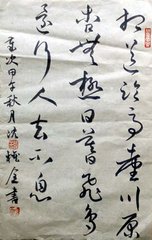 相送臨高臺川原
杳無極日暮飛鳥
還行人去不息
歲次甲子秋月 書